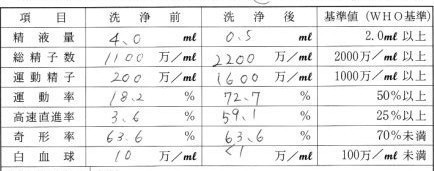 項 目 洗 浄 前 洗 浄 後 基準値(WHO基準)
精 液 量 4.0 ml 0.5 ml 2.0ml 以上
総精子数 1100 万/ml 2200 万/ml 2000万/ml 以上
運動精子 200 万/ml 1600 万/ml 1000万/ml 以上
運 動 率 18.2 % 72.7 % 50%以上
高速直進率 3.6 % 59.1 % 25%以上
奇 形 率 63.6 % 63.6 % 70%未満
白 血 球 10 万/ml <1 万/ml 100万/ml 未満